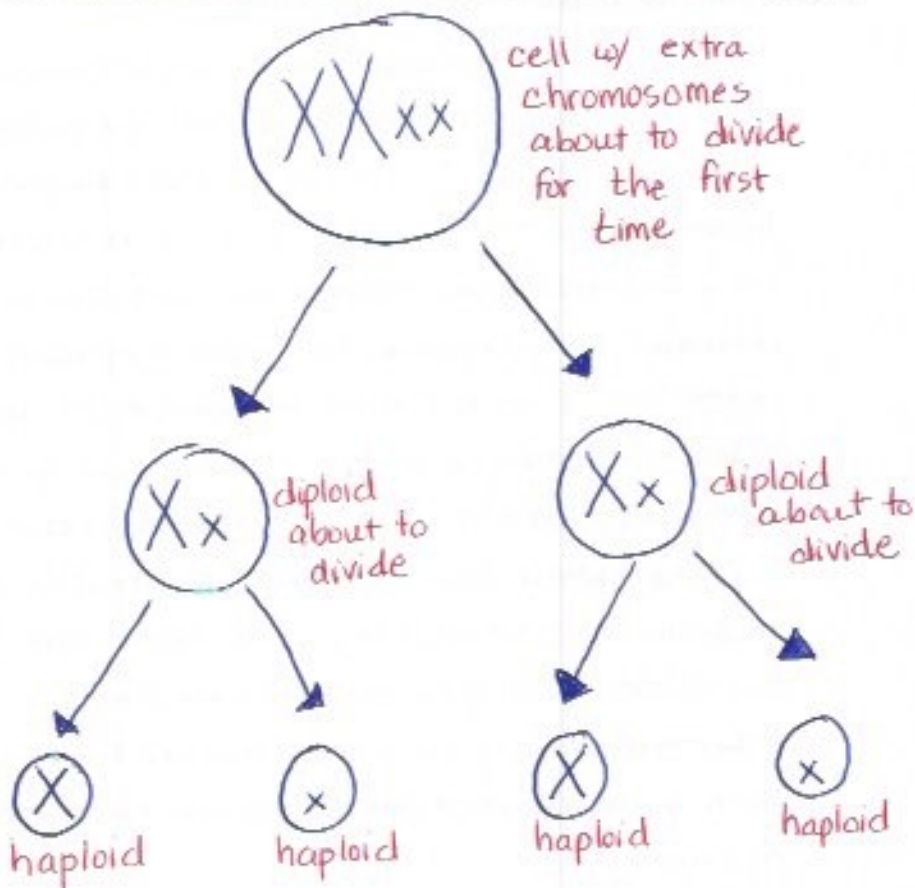 cell w/ extra
chromosomes
about to divide
for the first
time
XXxx
diploid
about to
divide
Xx
diploid
about to
divide
Xx
X
haploid
x
haploid
X
haploid
x
haploid